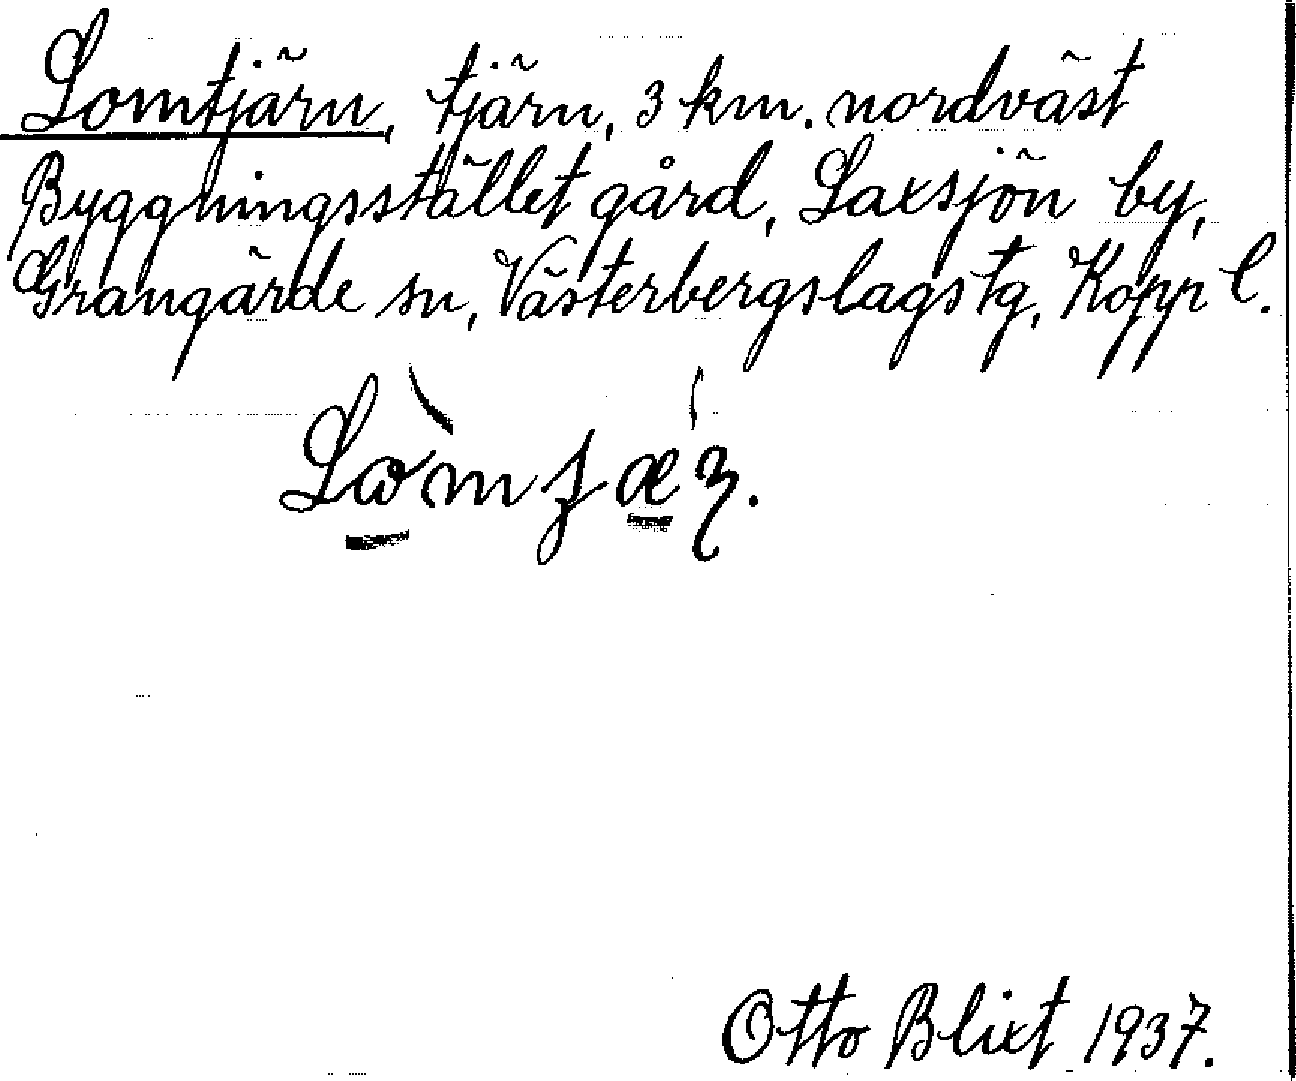 Lomtjärn, tjärn, 3 km. nordväst
Byggningsstället gård, Laxsjön by,
Grangärde sn, Västerbergslags tg, Kopp l.
Otto Blixt 1937.